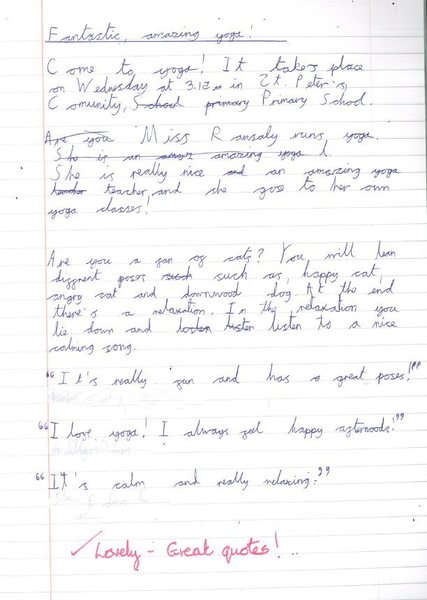 Fantastic, amazing yoga!
Come to yoga! It takes place
on Wednesday at 3.15 in St. Peter's,
Comunity, School primary Primary School.
Are you Miss Ransaly runs yoga.
She is an amazing yoga
She is really nice and an amazing yoga
teacher, and she gose to her own
yoga classes!
Are you a fan of cats? You will lean
diffrent poses such such as, happy cat,
angry cat and downwood dog. At the end
there's a relaxation. In the relaxation you
lie down and listen listen to a nice
calming song.
"It's really fun and has a great poses!"
"I love yoga! I always feel happy afternoods!"
"It's calm and really relaxing."
✓ Lovely - Great quotes!..